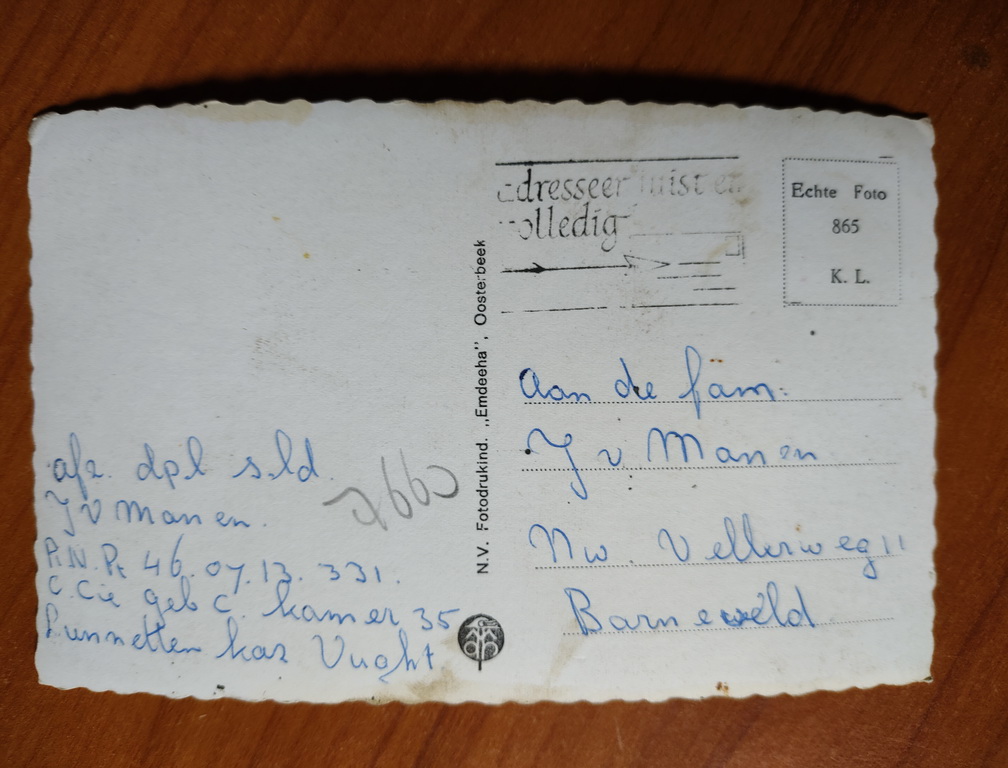 adresseer juist en
volledig
Echte Foto
865
K. L.
N.V. Fotodrukind. „Emdeeha", Oosterbeek
Aan de fam:
J v Manen
Nw. Vellerweg 11
Barneveld
afz. dpl sld.
J v Manen.
R.N. Pt 46.07.13.331.
C.Cie geb C. kamer 35
Lunnetten kaz Vught